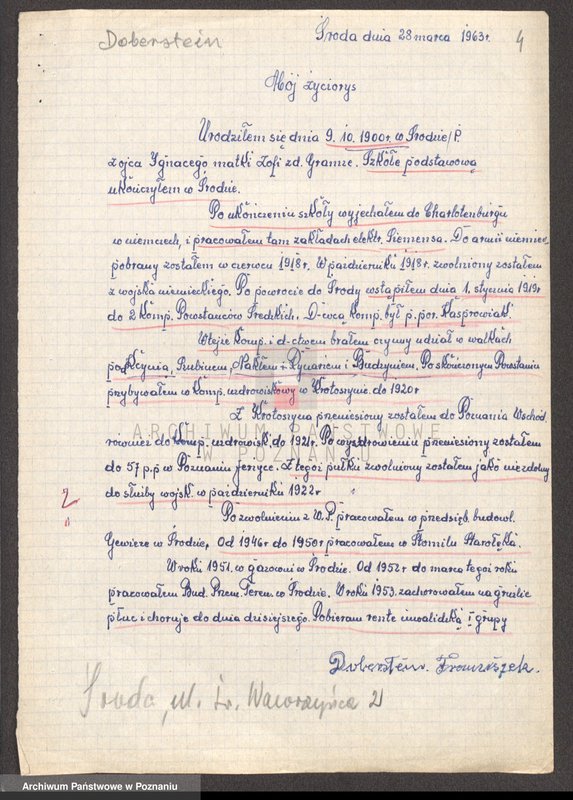 Doberstein
Środa dnia 28 marca 1963r.
4
Mój życiorys
Urodziłem się dnia 9. 10. 1900r. w Środzie/P.
z ojca Ignacego matki Zofi zd. Gramze. Szkołę podstawową
ukończyłem w Środzie.
Po ukończeniu szkóły wyjechałem do Charlotenburgu
w niemczech, i pracowałem tam zakładach elektr. Siemensa. Do armii niemiec
pobrany zostałem w czerwcu 1918r. W pazdierniku 1918r. zwolniony zostałem
z wojska niemieckiego. Po powrocie do Środy wstąpiłem dnia 1. stycznia 1919r
do 2 komp. Powstańców Średzkich. D-wcą komp. był p. por. Kasprowiak.
W tejże komp. i d-ctwem brałem czynny udział w walkach
pod Kcynią, Rubinem, Nakłem + Rynariem i Budzyniem. Po skończonym Powstaniu
przybywałem w komp. uzdrowiskowy w Krotoszynie do 1920r
Z Krotoszyna przeniesiony zostałem do Poznania Wschód
rownież do komp. uzdrowisk. do 1921r. Po wyzdrowieniu przeniesiony zostałem
do 57 p.p w Poznaniu Jeżyce. Z tegoż pułku zwolniony zostałem jako niezdolny
do służby wojsk. w pazdzierniku 1922r
2
Po zwolnieniu z W.P. pracowałem w przedsięb. budowl.
Gewieze w Środzie, Od 1946r do 1950r pracowałem w Stomilu Starołęka.
W roku 1951. w gazowni w Środzie. Od 1952r do marca tegoż roku
pracowałem Bud. Przem. Teren. w Środzie. W roku 1953. zachorowałem na gruźlie
płuc i choruje do dnia dzisiejszego. Pobieram rente inwalidzką I grupy
Doberstein. Franciszek.
Środa, ul. Św. Wawrzyńca 2
ARCHIWUM PAŃSTWOWE
W POZNANIU
Archiwum Państwowe w Poznaniu